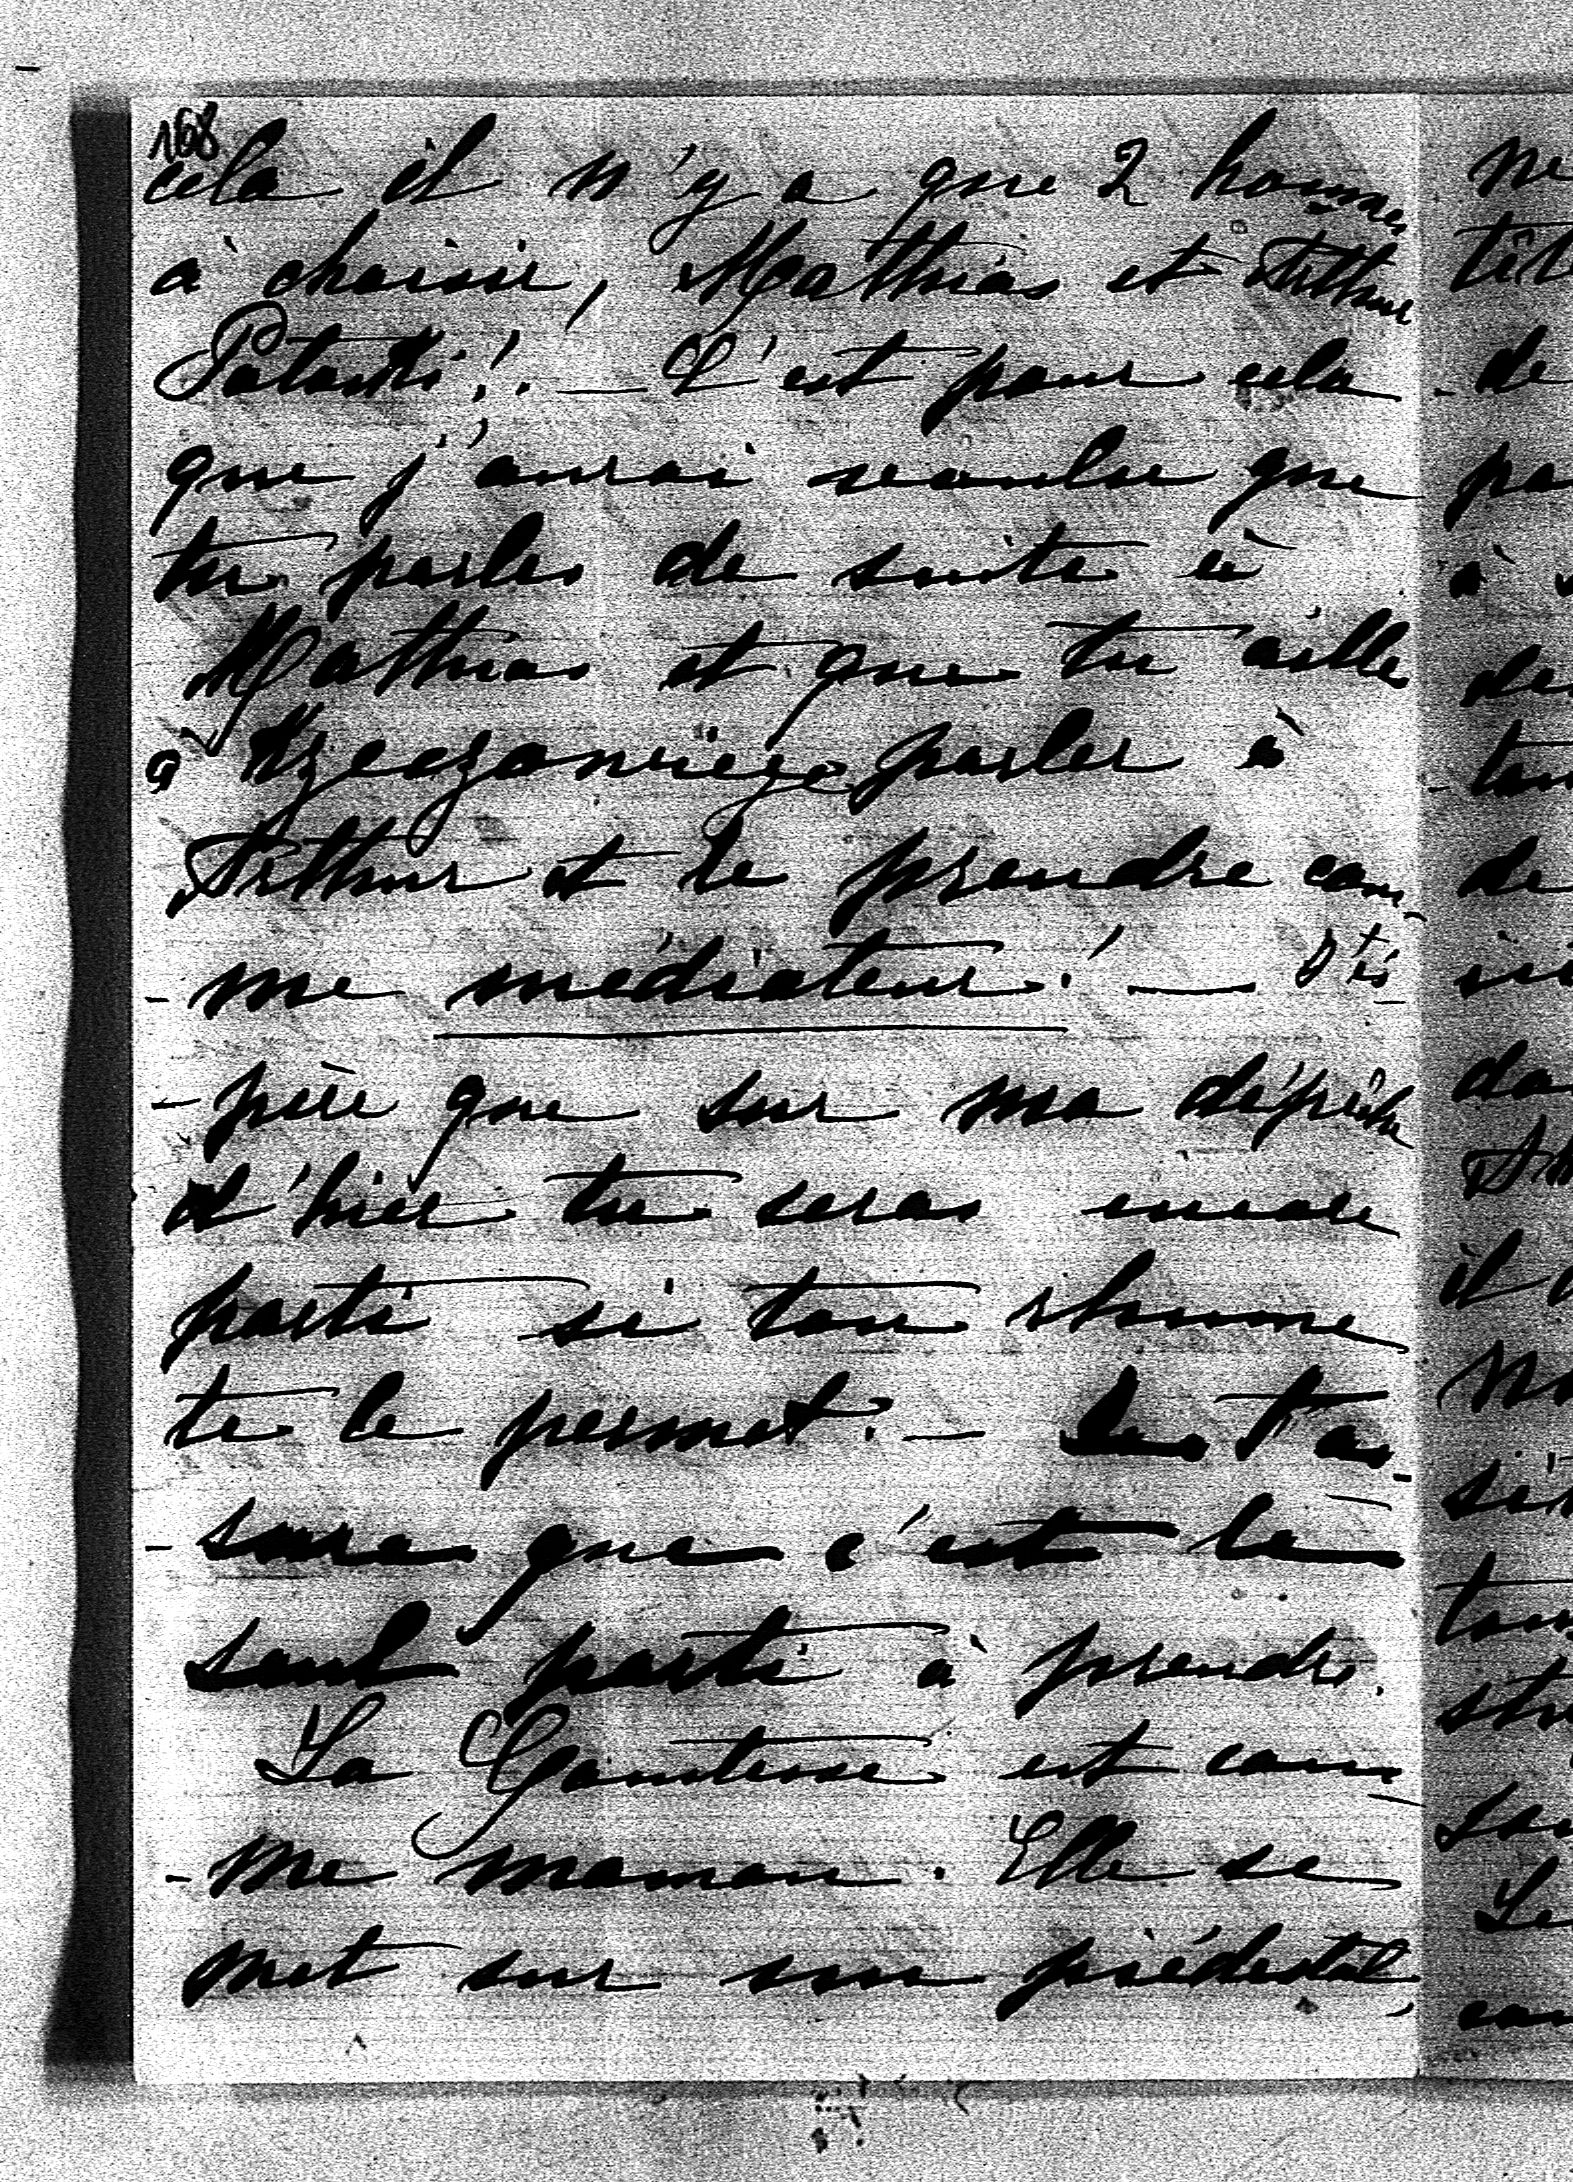 168
cela il n'y a que 2 hommes
à choisir, Mathias et Arthur
Potocki!. — C'est pour cela
que j'aurai voulu que
tu parles de suite à
Mathias et que tu ailles
à Krzeczowicze parler à
Arthur et le prendre com-
-me médiateur! —
-père que sur ma dépêche
d'hier tu seras encore
parti si ton rhume
te le permet. — t'as-
-sure que c'est le
seul parti à prendre.
La Comtesse est com-
-me maman. Elle se
met sur un piédestal,